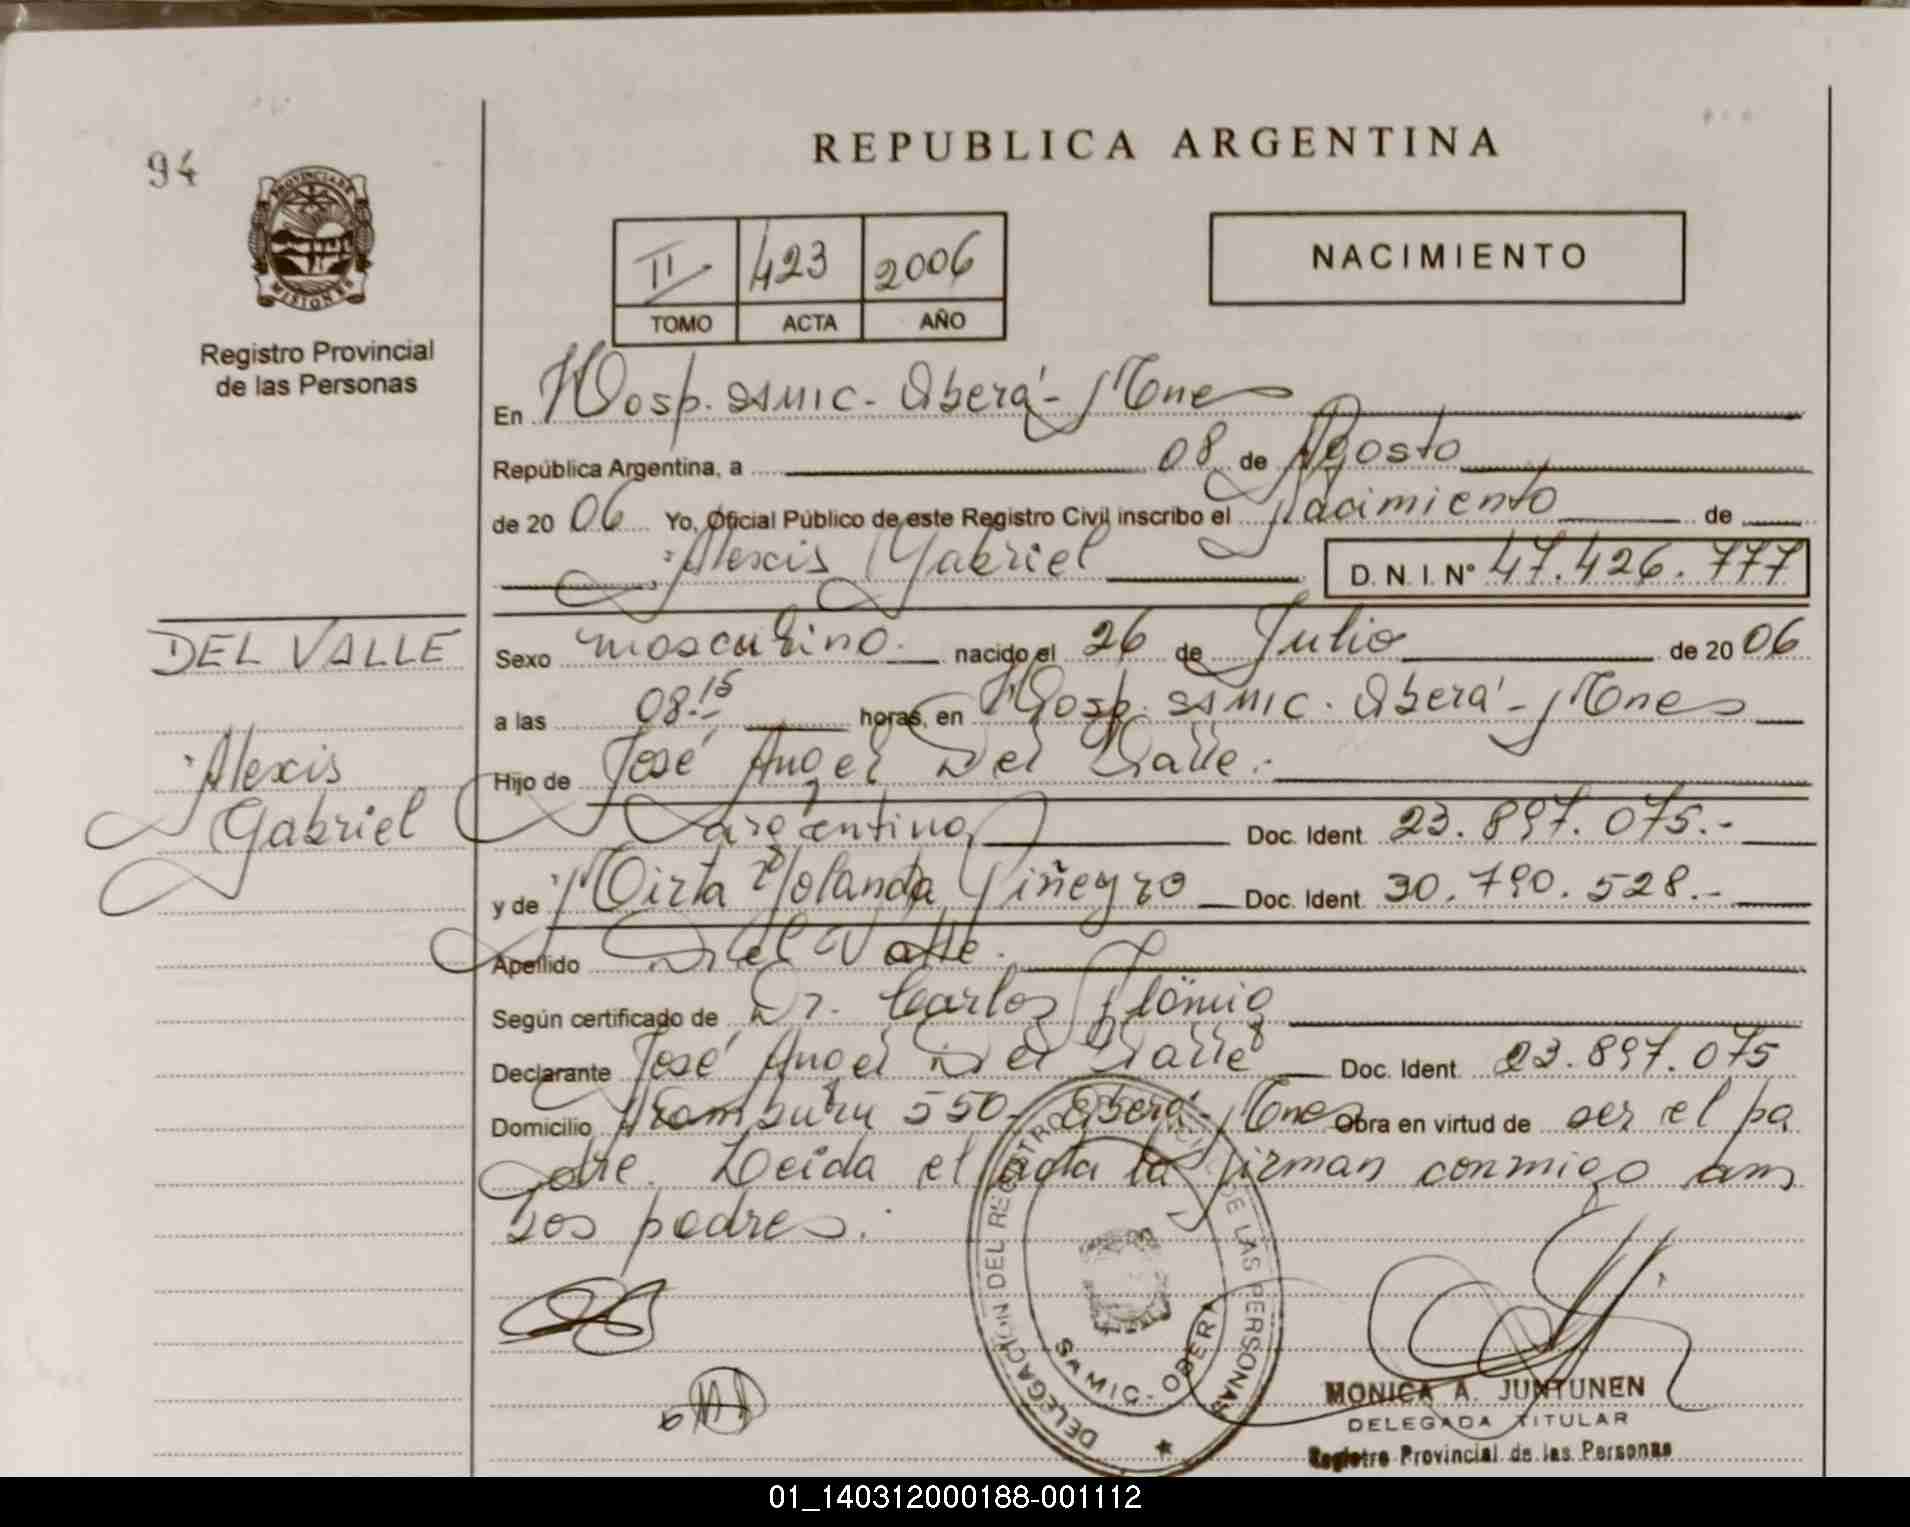 94
REPUBLICA ARGENTINA
PROVINCIA DE
MISIONES
Registro Provincial
de las Personas
II 423 2006
TOMO ACTA AÑO
NACIMIENTO
En Hosp. SAMIC - Oberá - Mnes
República Argentina, a 08 de Agosto
de 20 06 Yo, Oficial Público de este Registro Civil inscribo el Nacimiento de
Alexis Gabriel D. N. I. Nº 47.426.777
DEL VALLE
Alexis
Gabriel
Sexo masculino. nacido el 26 de Julio de 20 06
a las 08.15 horas, en Hosp. SAMIC. Oberá - Mnes
Hijo de José Angel Del Valle.
argentino Doc. Ident. 23.897.075.-
y de Mirta Yolanda Doc. Ident. 30.790.528.-
Apellido Del Valle.
Según certificado de Dr. Carlos
Declarante José Angel Del Valle Doc. Ident. 23.897.075
Domicilio Aramburu 550 - Oberá - Mnes Obra en virtud de ser el pa
dre. Leída el acta la firman conmigo am
bos padres.
DELEGACIÓN DEL REGISTRO DE LAS PERSONAS
SAMIC - OBERA
MONICA A. JUNTUNEN
DELEGADA TITULAR
Registro Provincial de las Personas
01_140312000188-001112